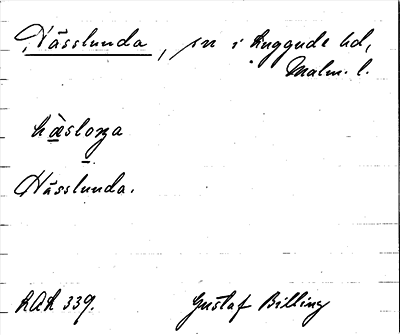 Nässlunda, sn i Luggude hd,
Malm. l.
Nässlunda.
LAL 339. Gustaf Billing